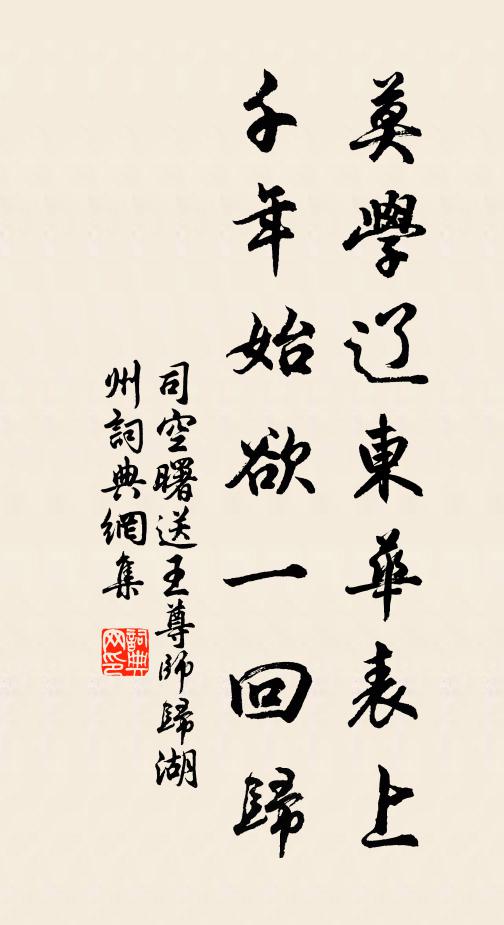 莫學辽東華表上
千年始欲一回歸
司空曙送王尊師歸湖
州詞典網集
詞典网印